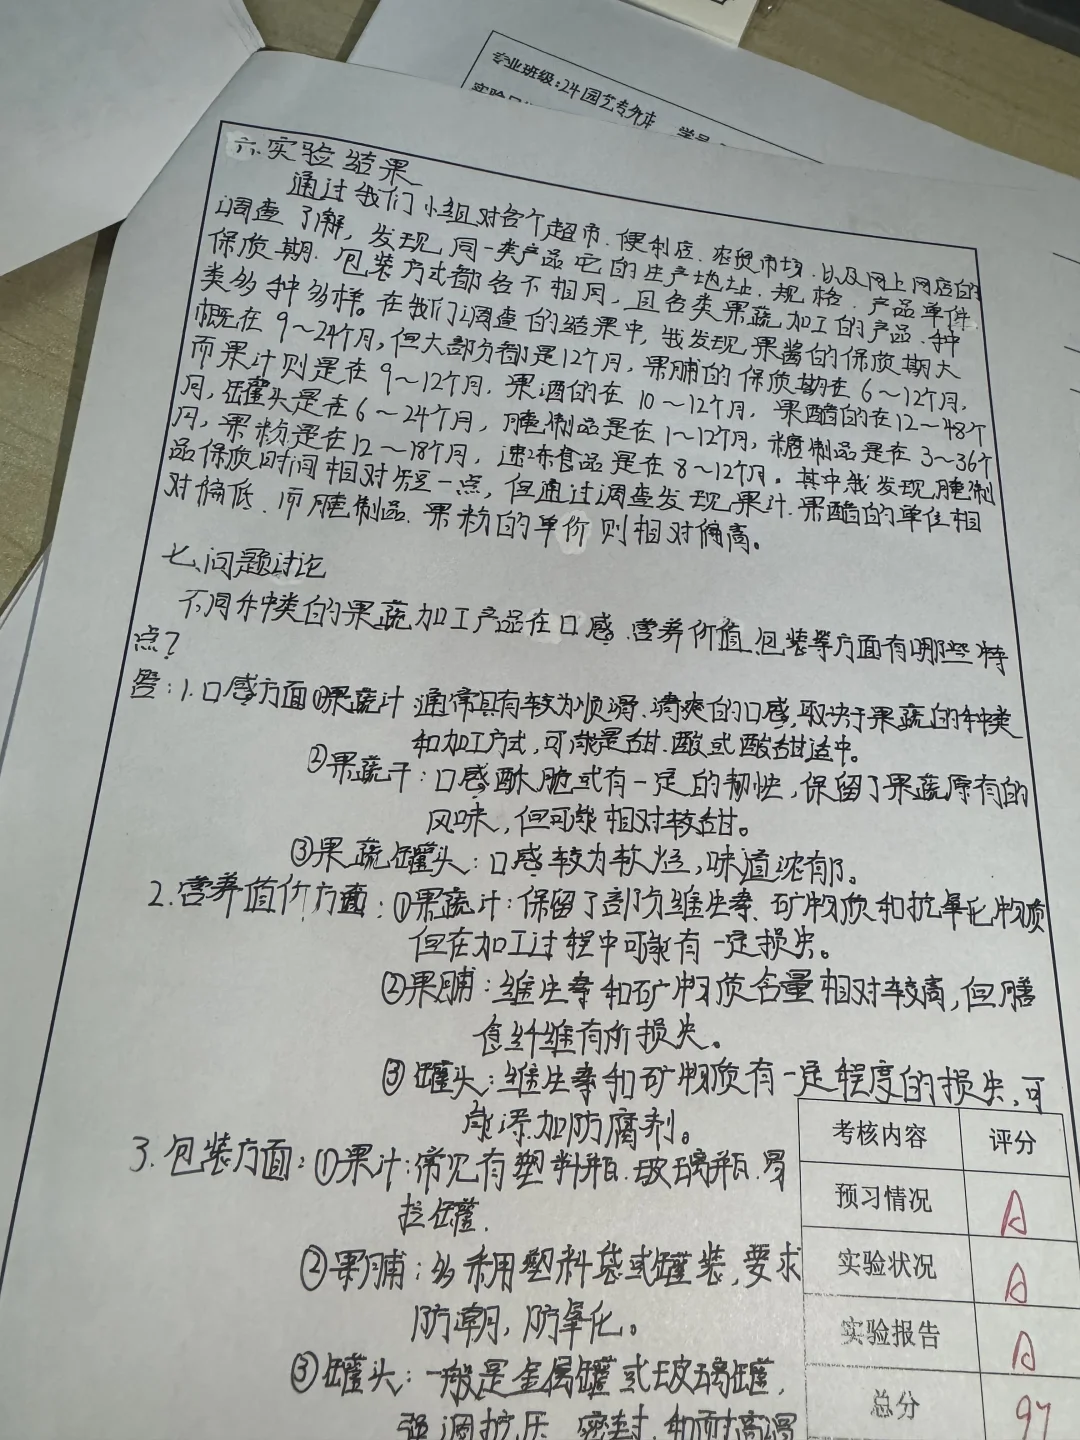 专业班级:24园艺专升本 学号
六、实验结果
通过我们小组对各个超市、便利店、农贸市场、以及网上网店的
调查了解,发现同一类产品它的生产地址、规格、产品单价、
保质期、包装方式都各不相同,且各类果蔬加工的产品、种
类多种多样。在我们调查的结果中,我发现果酱的保质期大
概在9～24个月,但大部分都是12个月,果脯的保质期在6～12个月,
而果汁则是在9～12个月,果酒的在10～12个月,果醋的在12～48个
月,罐头是在6～24个月,腌制品是在1～12个月,糖制品是在3～36个
月,果粉是在12～18个月,速冻食品是在8～12个月。其中我发现腌制
品保质时间相对短一点,但通过调查发现果汁、果醋的单位相
对偏低、而腌制品、果粉的单价则相对偏高。
七、问题讨论
不同种类的果蔬加工产品在口感、营养价值、包装等方面有哪些特
点?
答:1.口感方面①果蔬汁通常具有较为顺滑、清爽的口感,取决于果蔬的种类
和加工方式,可能是甜、酸或酸甜适中。
②果蔬干:口感酥脆或有一定的韧性,保留了果蔬原有的
风味,但可能相对较甜。
③果蔬罐头:口感较为软烂,味道浓郁。
2.营养值价方面:①果蔬汁:保留了部分维生素、矿物质和抗氧化物质
但在加工过程中可能有一定损失。
②果脯:维生素和矿物质含量相对较高,但膳
食纤维有所损失。
③罐头:维生素和矿物质有一定程度的损失,可
能添加防腐剂。
3.包装方面:①果汁:常见有塑料瓶、玻璃瓶、易
拉罐.
②果脯:多采用塑料袋或罐装,要求
防潮,防氧化。
③罐头:一般是金属罐或玻璃罐,
强调抗压、密封、和耐高温
考核内容 评分
预习情况 A
实验状况 A
实验报告 A
总分 97